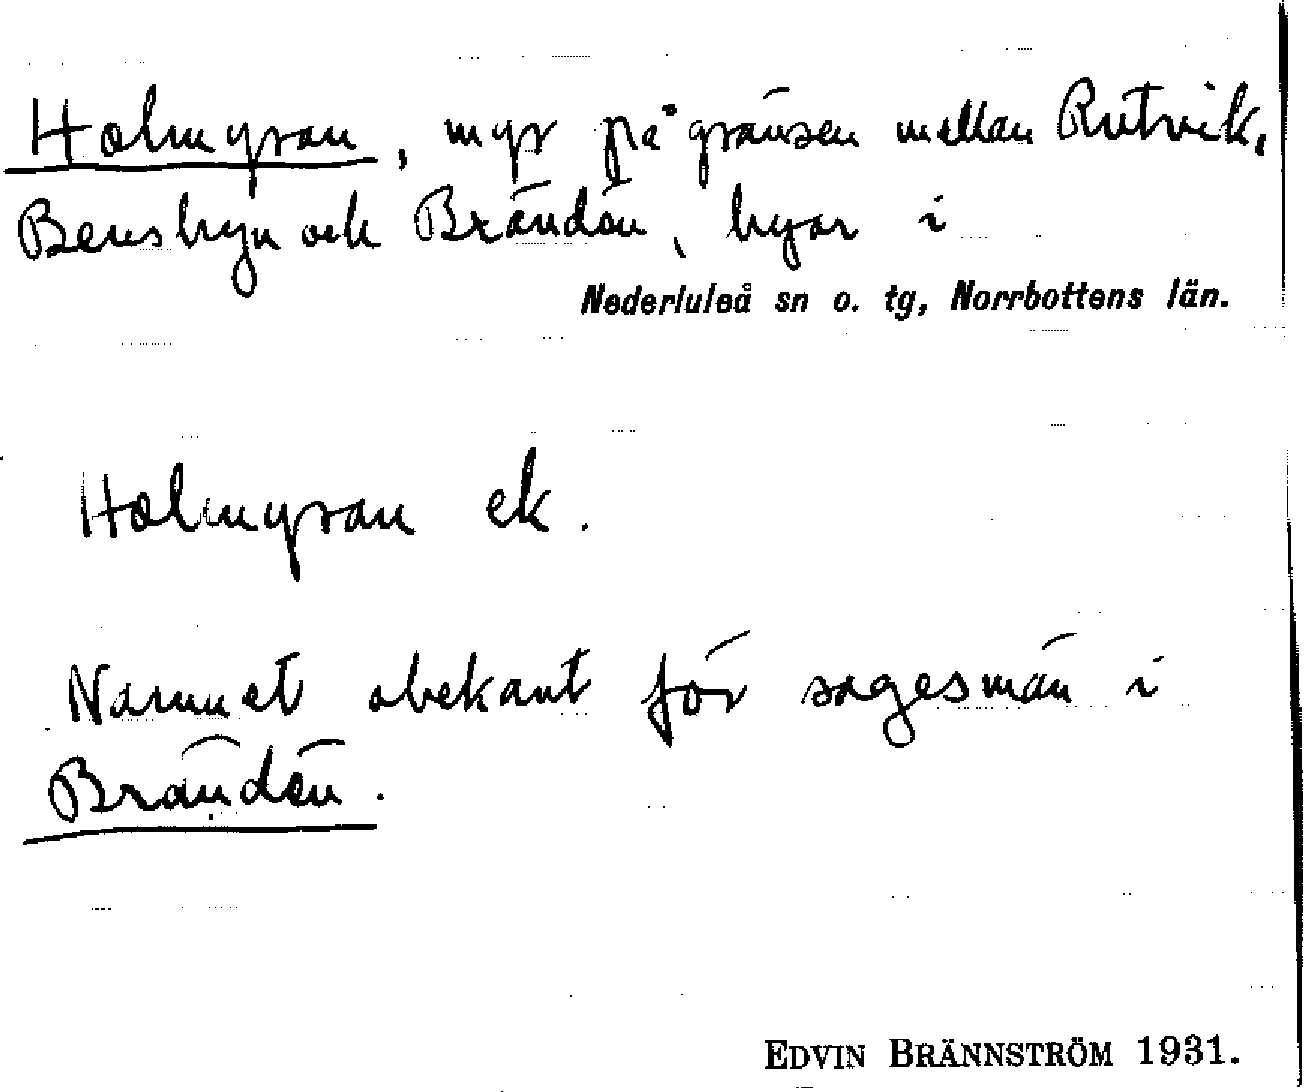 Holmyran, myr på gränsen mellan Rutvik,
Bensbyn och Brändön, byar i
Nederluleå sn o. tg, Norrbottens län.
Holmyran ek.
Namnet obekant för sagesmän i
Brändön.
EDVIN BRÄNNSTRÖM 1931.